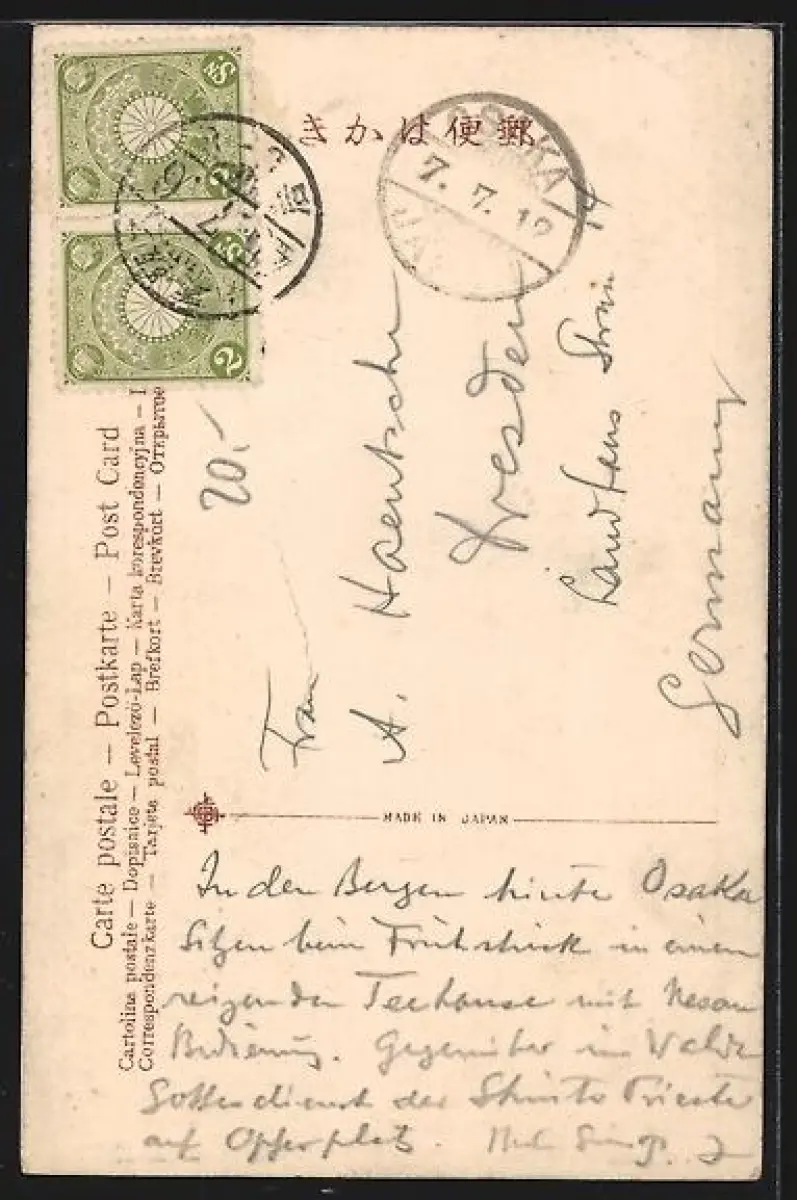 郵便はかき
OSAKA
7. 7. 12
Carte postale — Postkarte — Post Card
Cartolina postale — Dopisnice — Levelező-Lap — Karta korespondencyjna —
Correspondenzkarte — Tarjeta postal — Brefkort — Brevkort — Открытое
20.-
Frau
A. Haentsche
Dresden
Landhaus Strasse 14
Germany
MADE IN JAPAN
In den Bergen hinter Osaka
Sitzen beim Frühstück in einem
reizenden Teehause mit Nesan
Bedienung. Gegenüber im Walde
Gottesdienst der Shinto Priester
auf Opferplatz.